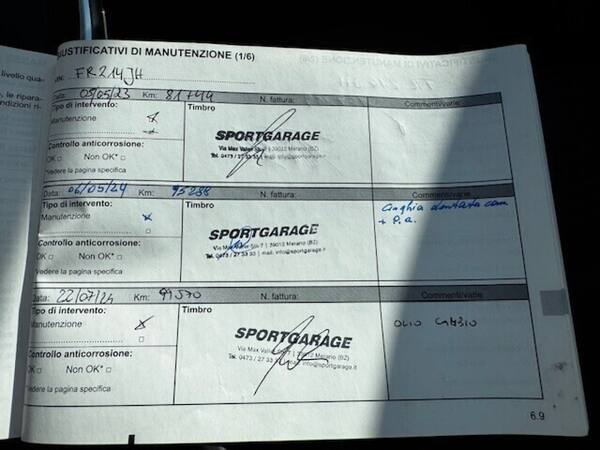 GIUSTIFICATIVI DI MANUTENZIONE (1/6)
VIN: FR214JH
Data: 03/05/23 Km: 81749 N. fattura: Commenti/varie:
Tipo di intervento: Timbro
Manutenzione
SPORTGARAGE
Controllo anticorrosione:
Via Max Valier Str. 7 | 39012 Merano (BZ)
OK □ Non OK* □
Tel. 0473 / 27 33 33 | mail: info@sportgarage.it
*Vedere la pagina specifica
Data: 06/05/24 Km: 95288 N. fattura: Commenti/varie:
Tipo di intervento: Timbro
Cinghia dentata com
Manutenzione
+ P.a.
SPORTGARAGE
Controllo anticorrosione:
Via Max Valier Str. 7 | 39012 Merano (BZ)
OK □ Non OK* □
Tel. 0473 / 27 33 33 | mail: info@sportgarage.it
*Vedere la pagina specifica
Data: 22/07/24 Km: 99570 N. fattura: Commenti/varie:
Tipo di intervento: Timbro
Manutenzione
OLIO CAMBIO
SPORTGARAGE
Controllo anticorrosione:
Via Max Valier Str. 7 | 39012 Merano (BZ)
OK □ Non OK* □
Tel. 0473 / 27 33 33 | mail: info@sportgarage.it
*Vedere la pagina specifica
6.9
livello qua-
le ripara-
ndizioni ri-